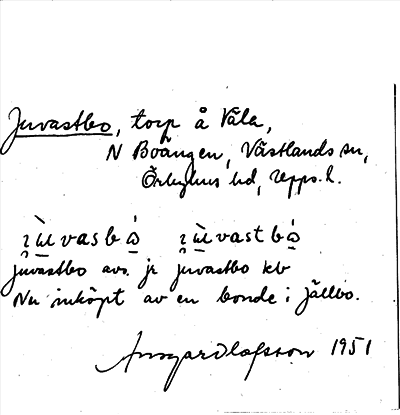 Juvastbo, torp å Väla,
N Boängen, Västlands sn,
Örbyhus hd, Upps. l.
juvastbo avs. jr juvastbo kb
Nu inköpt av en bonde i Jällbo.
Ansgar Olofsson 1951